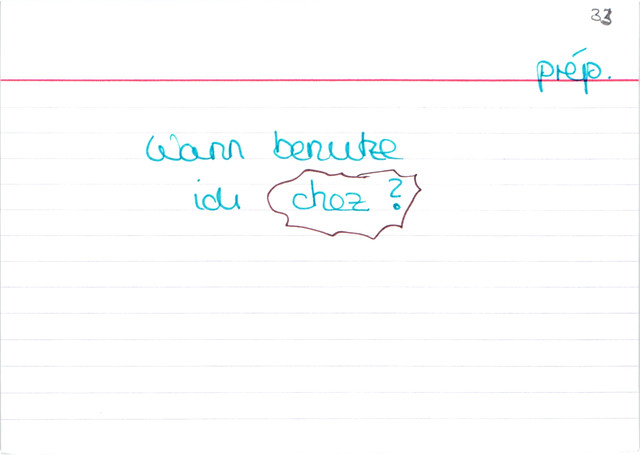 33
prép.
Wann benutze
ich chez ?